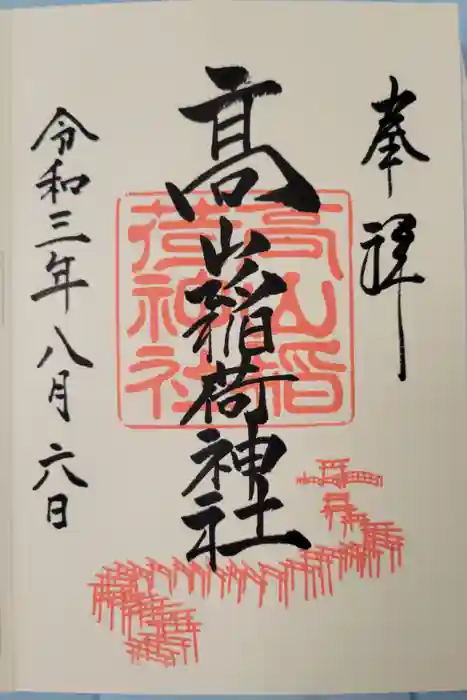 奉拝
髙山稲荷神社
高山稲
荷神社
令和三年八月六日